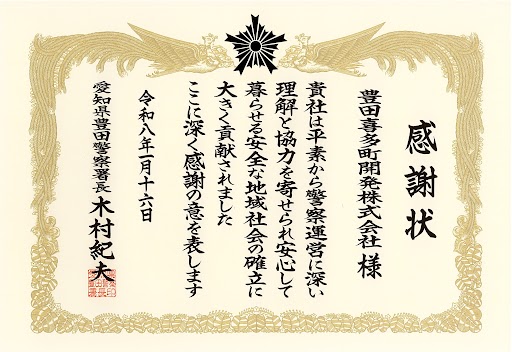 感謝状
豊田喜多町開発株式会社 様
貴社は平素から警察運営に深い
理解と協力を寄せられ安心して
暮らせる安全な地域社会の確立に
大きく貢献されました
ここに深く感謝の意を表します
令和八年一月十六日
愛知県豊田警察署長 木村紀夫